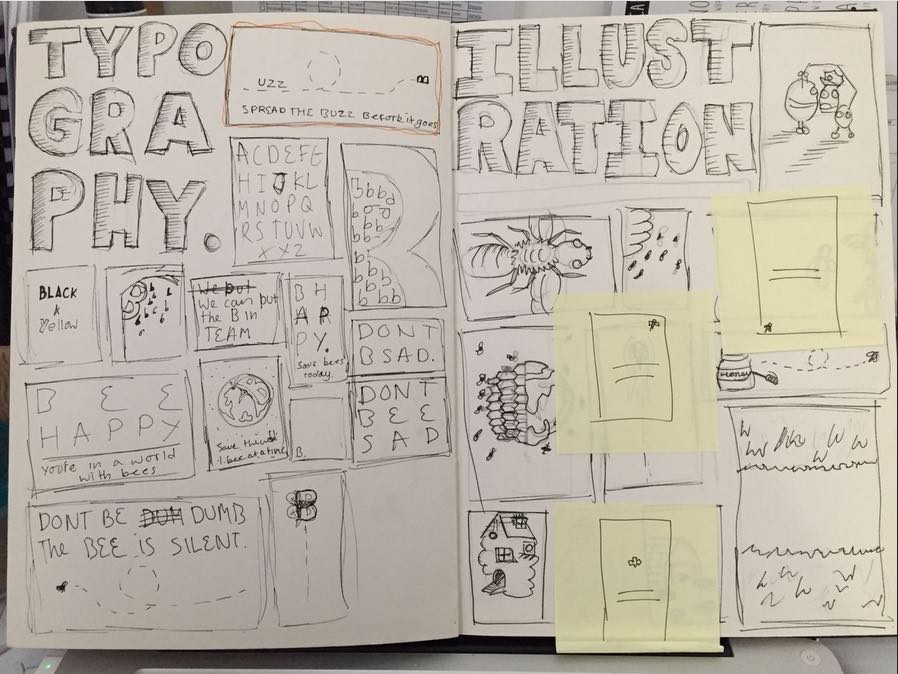 TYPO
GRA
PHY.
UZZ B
SPREAD THE BUZZ Before it goes
ACDEFG
HIJKL
MNOPQ
RSTUVW
XYZ
bbbb
bb
bb
bbb
bb
bb
bb
bbb
BLACK
&
Yellow
We But
We can put
the B in
TEAM
B H
A P
PY.
Save bees
today.
DONT
B SAD.
B E E
HAPPY
You're in a world
with bees
Save the world
1 bee at a time
B.
DONT
BEE
SAD
DONT BE DUM DUMB
The BEE is SILENT.
ILLUST
RATION
Honey